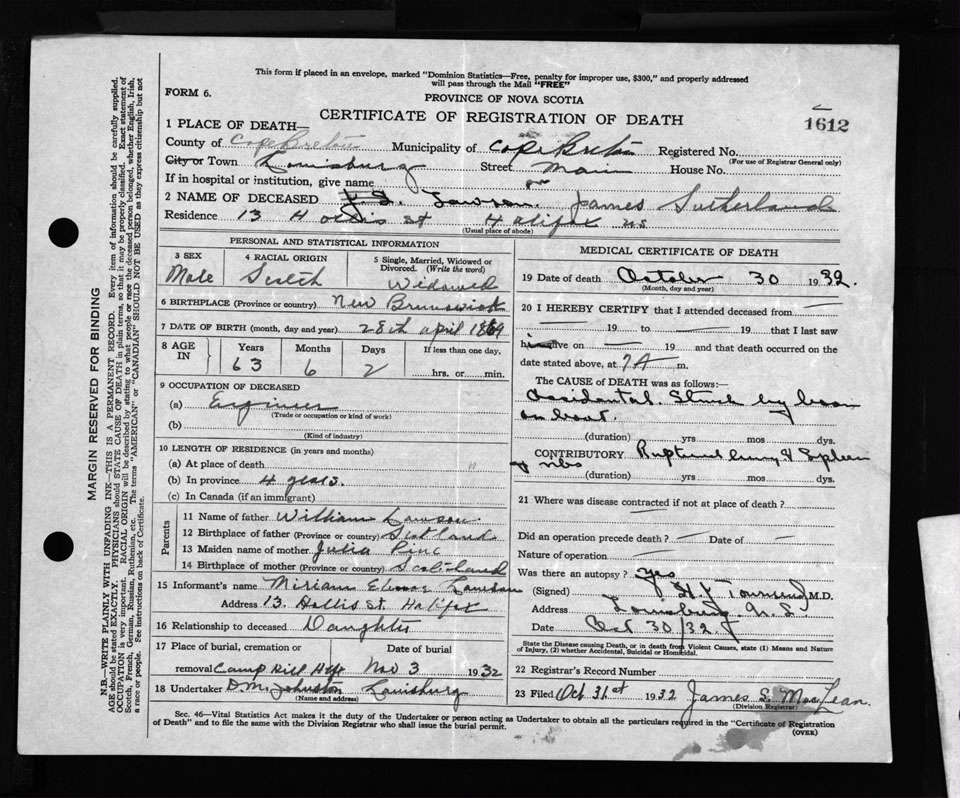 This form if placed in an envelope, marked "Dominion Statistics—Free, penalty for improper use, $300," and properly addressed
will pass through the Mail "FREE"
FORM 6.
PROVINCE OF NOVA SCOTIA
CERTIFICATE OF REGISTRATION OF DEATH
1612
1 PLACE OF DEATH—
County of Cape Breton Municipality of Cape Breton Registered No.
(For use of Registrar General only)
City or Town Louisburg Street Main House No.
If in hospital or institution, give name
2 NAME OF DECEASED Lawson. James Sutherland
Residence 13 Hollis St Halifax NS
(Usual place of abode)
PERSONAL AND STATISTICAL INFORMATION
3 SEX
Male
4 RACIAL ORIGIN
Scotch
5 Single, Married, Widowed or Divorced. (Write the word)
Widowed
6 BIRTHPLACE (Province or country) New Brunswick
7 DATE OF BIRTH (month, day and year) 28th April 1869
8 AGE IN
Years Months Days If less than one day,
63 6 2 hrs. or min.
9 OCCUPATION OF DECEASED
(a) Engineer
(Trade or occupation or kind of work)
(b)
(Kind of industry)
10 LENGTH OF RESIDENCE (in years and months)
(a) At place of death
(b) In province 4 years.
(c) In Canada (if an immigrant)
Parents
11 Name of father William Lawson
12 Birthplace of father (Province or country) Scotland
13 Maiden name of mother Julia
14 Birthplace of mother (Province or country) Scotland
15 Informant's name Miriam Lawson
Address 13. Hollis St. Halifax
16 Relationship to deceased Daughter
17 Place of burial, cremation or Date of burial
removal Camp Hill Hfx Nov 3 1932
18 Undertaker D.M. Johnston Louisburg
(Name and address)
MEDICAL CERTIFICATE OF DEATH
19 Date of death October 30 1932.
(Month, day and year)
20 I HEREBY CERTIFY that I attended deceased from
19 to 19 that I last saw
h alive on 19 and that death occurred on the
date stated above, at 7 A m.
The CAUSE of DEATH was as follows:—
Accidental. Struck by boom
on boat.
(duration) yrs mos dys.
CONTRIBUTORY Ruptured lung & Spleen
(duration) yrs mos dys.
21 Where was disease contracted if not at place of death?
Did an operation precede death? Date of
Nature of operation
Was there an autopsy? Yes
(Signed) Townsend M.D.
Address Louisburg N.S.
Date Oct 30/32.
State the Disease causing Death, or in death from Violent Causes, state (1) Means and Nature of Injury, (2) whether Accidental, Suicidal or Homicidal.
22 Registrar's Record Number
23 Filed Oct 31st 1932 James S. MacLean.
(Division Registrar)
Sec. 46—Vital Statistics Act makes it the duty of the Undertaker or person acting as Undertaker to obtain all the particulars required in the "Certificate of Registration
of Death" and to file the same with the Division Registrar who shall issue the burial permit.
(OVER)
MARGIN RESERVED FOR BINDING
N.B.—WRITE PLAINLY WITH UNFADING INK—THIS IS A PERMANENT RECORD. Every item of information should be carefully supplied.
AGE should be stated EXACTLY. PHYSICIANS should STATE CAUSE OF DEATH in plain terms, so that it may be properly classified. Exact statement of
OCCUPATION is very important. RACIAL ORIGIN will be described by stating to what people or race the deceased person belonged, whether English, Irish,
Scotch, French, German, Russian, Ruthenian, etc. The terms "AMERICAN" or "CANADIAN" SHOULD NOT BE USED as they express citizenship but not
a race or people. See instructions on back of Certificate.